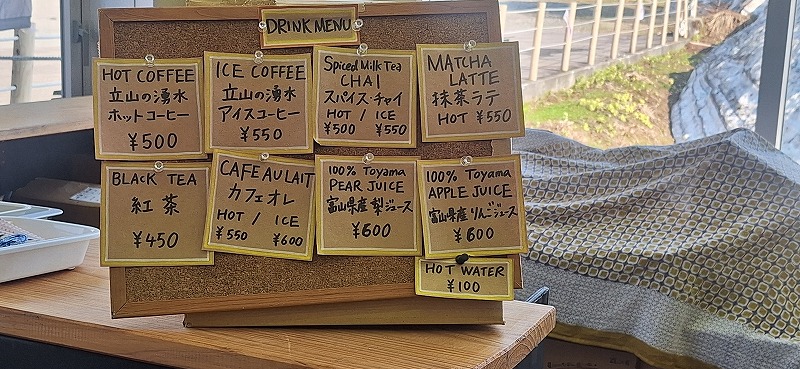 DRINK MENU
HOT COFFEE
立山の湧水
ホットコーヒー
¥500
ICE COFFEE
立山の湧水
アイスコーヒー
¥550
Spiced Milk Tea
CHAI
スパイス・チャイ
HOT / ICE
¥500 ¥550
MATCHA
LATTE
抹茶ラテ
HOT ¥550
BLACK TEA
紅茶
¥450
CAFE AU LAIT
カフェオレ
HOT / ICE
¥550 ¥600
100% Toyama
PEAR JUICE
富山県産 梨ジュース
¥600
100% Toyama
APPLE JUICE
富山県産 りんごジュース
¥600
HOT WATER
¥100